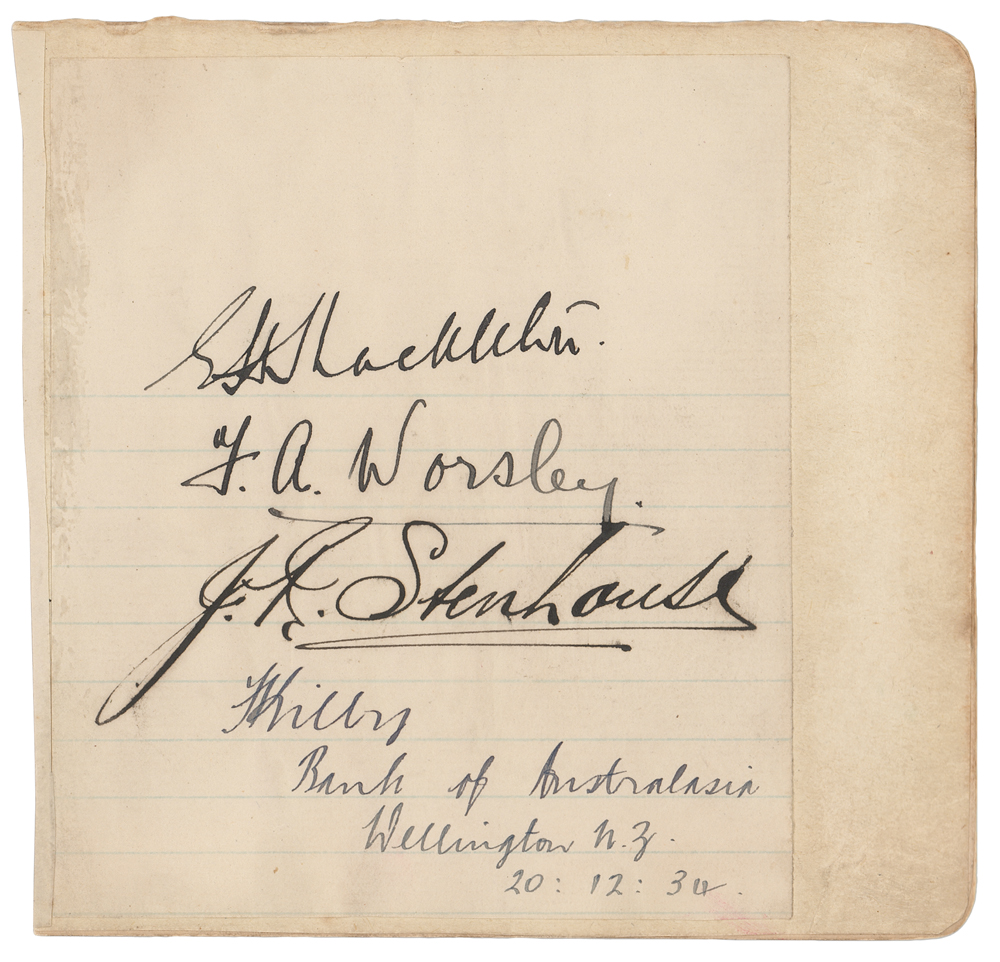 E H Shackleton.
F. A. Worsley.
J. R. Stenhouse
Kilby
Bank of Australasia
Wellington N.Z.
20: 12: 34.